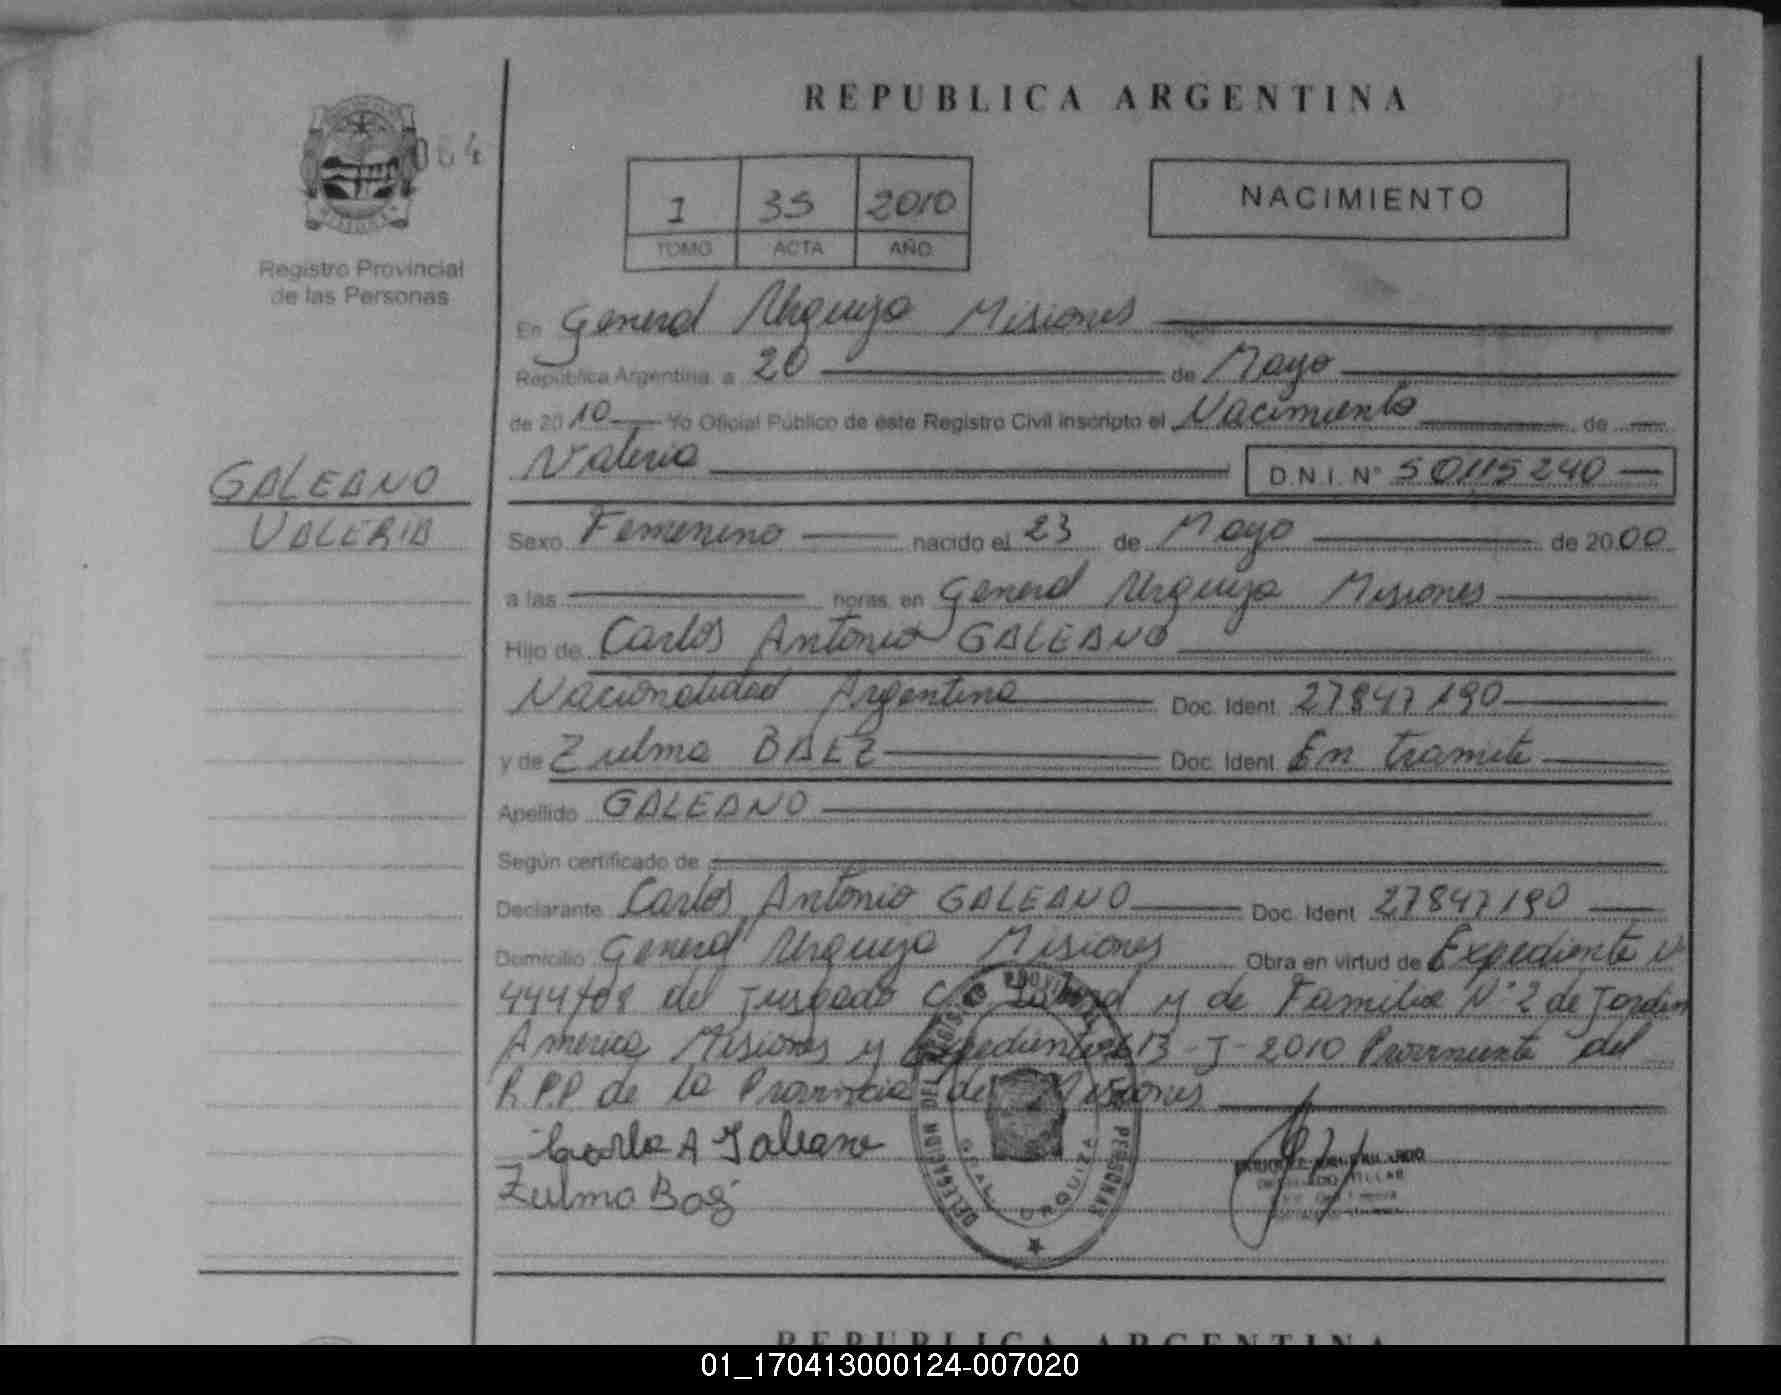 REPUBLICA ARGENTINA
064
1 35 2010
TOMO ACTA AÑO
NACIMIENTO
Registro Provincial
de las Personas
En General Urquiza Misiones
República Argentina a 20 de Mayo
de 2010 Yo Oficial Público de este Registro Civil inscripto el Nacimiento de
Valeria D.N.I. N° 50115240
GALEANO
VALERIA
Sexo Femenino nacido el 23 de Mayo de 2000
a las horas en General Urquiza Misiones
Hijo de Carlos Antonio GALEANO
Nacionalidad Argentina Doc. Ident. 27847190
y de Zulma BAEZ Doc. Ident. En tramite
Apellido GALEANO
Según certificado de
Declarante Carlos Antonio GALEANO Doc. Ident. 27847190
Domicilio General Urquiza Misiones Obra en virtud de Expediente N°
del Juzgado Laboral y de Familia N° 2 de Jardin
America Misiones y Expediente 613-J-2010 Proveniente del
R.P.P de la Provincia de Misiones
Carlo A Galeano
Zulma Baez
DELEGACION DEL REGISTRO PROVINCIAL PERSONAS
GRAL. URQUIZA
REPUBLICA ARGENTINA
01_170413000124-007020